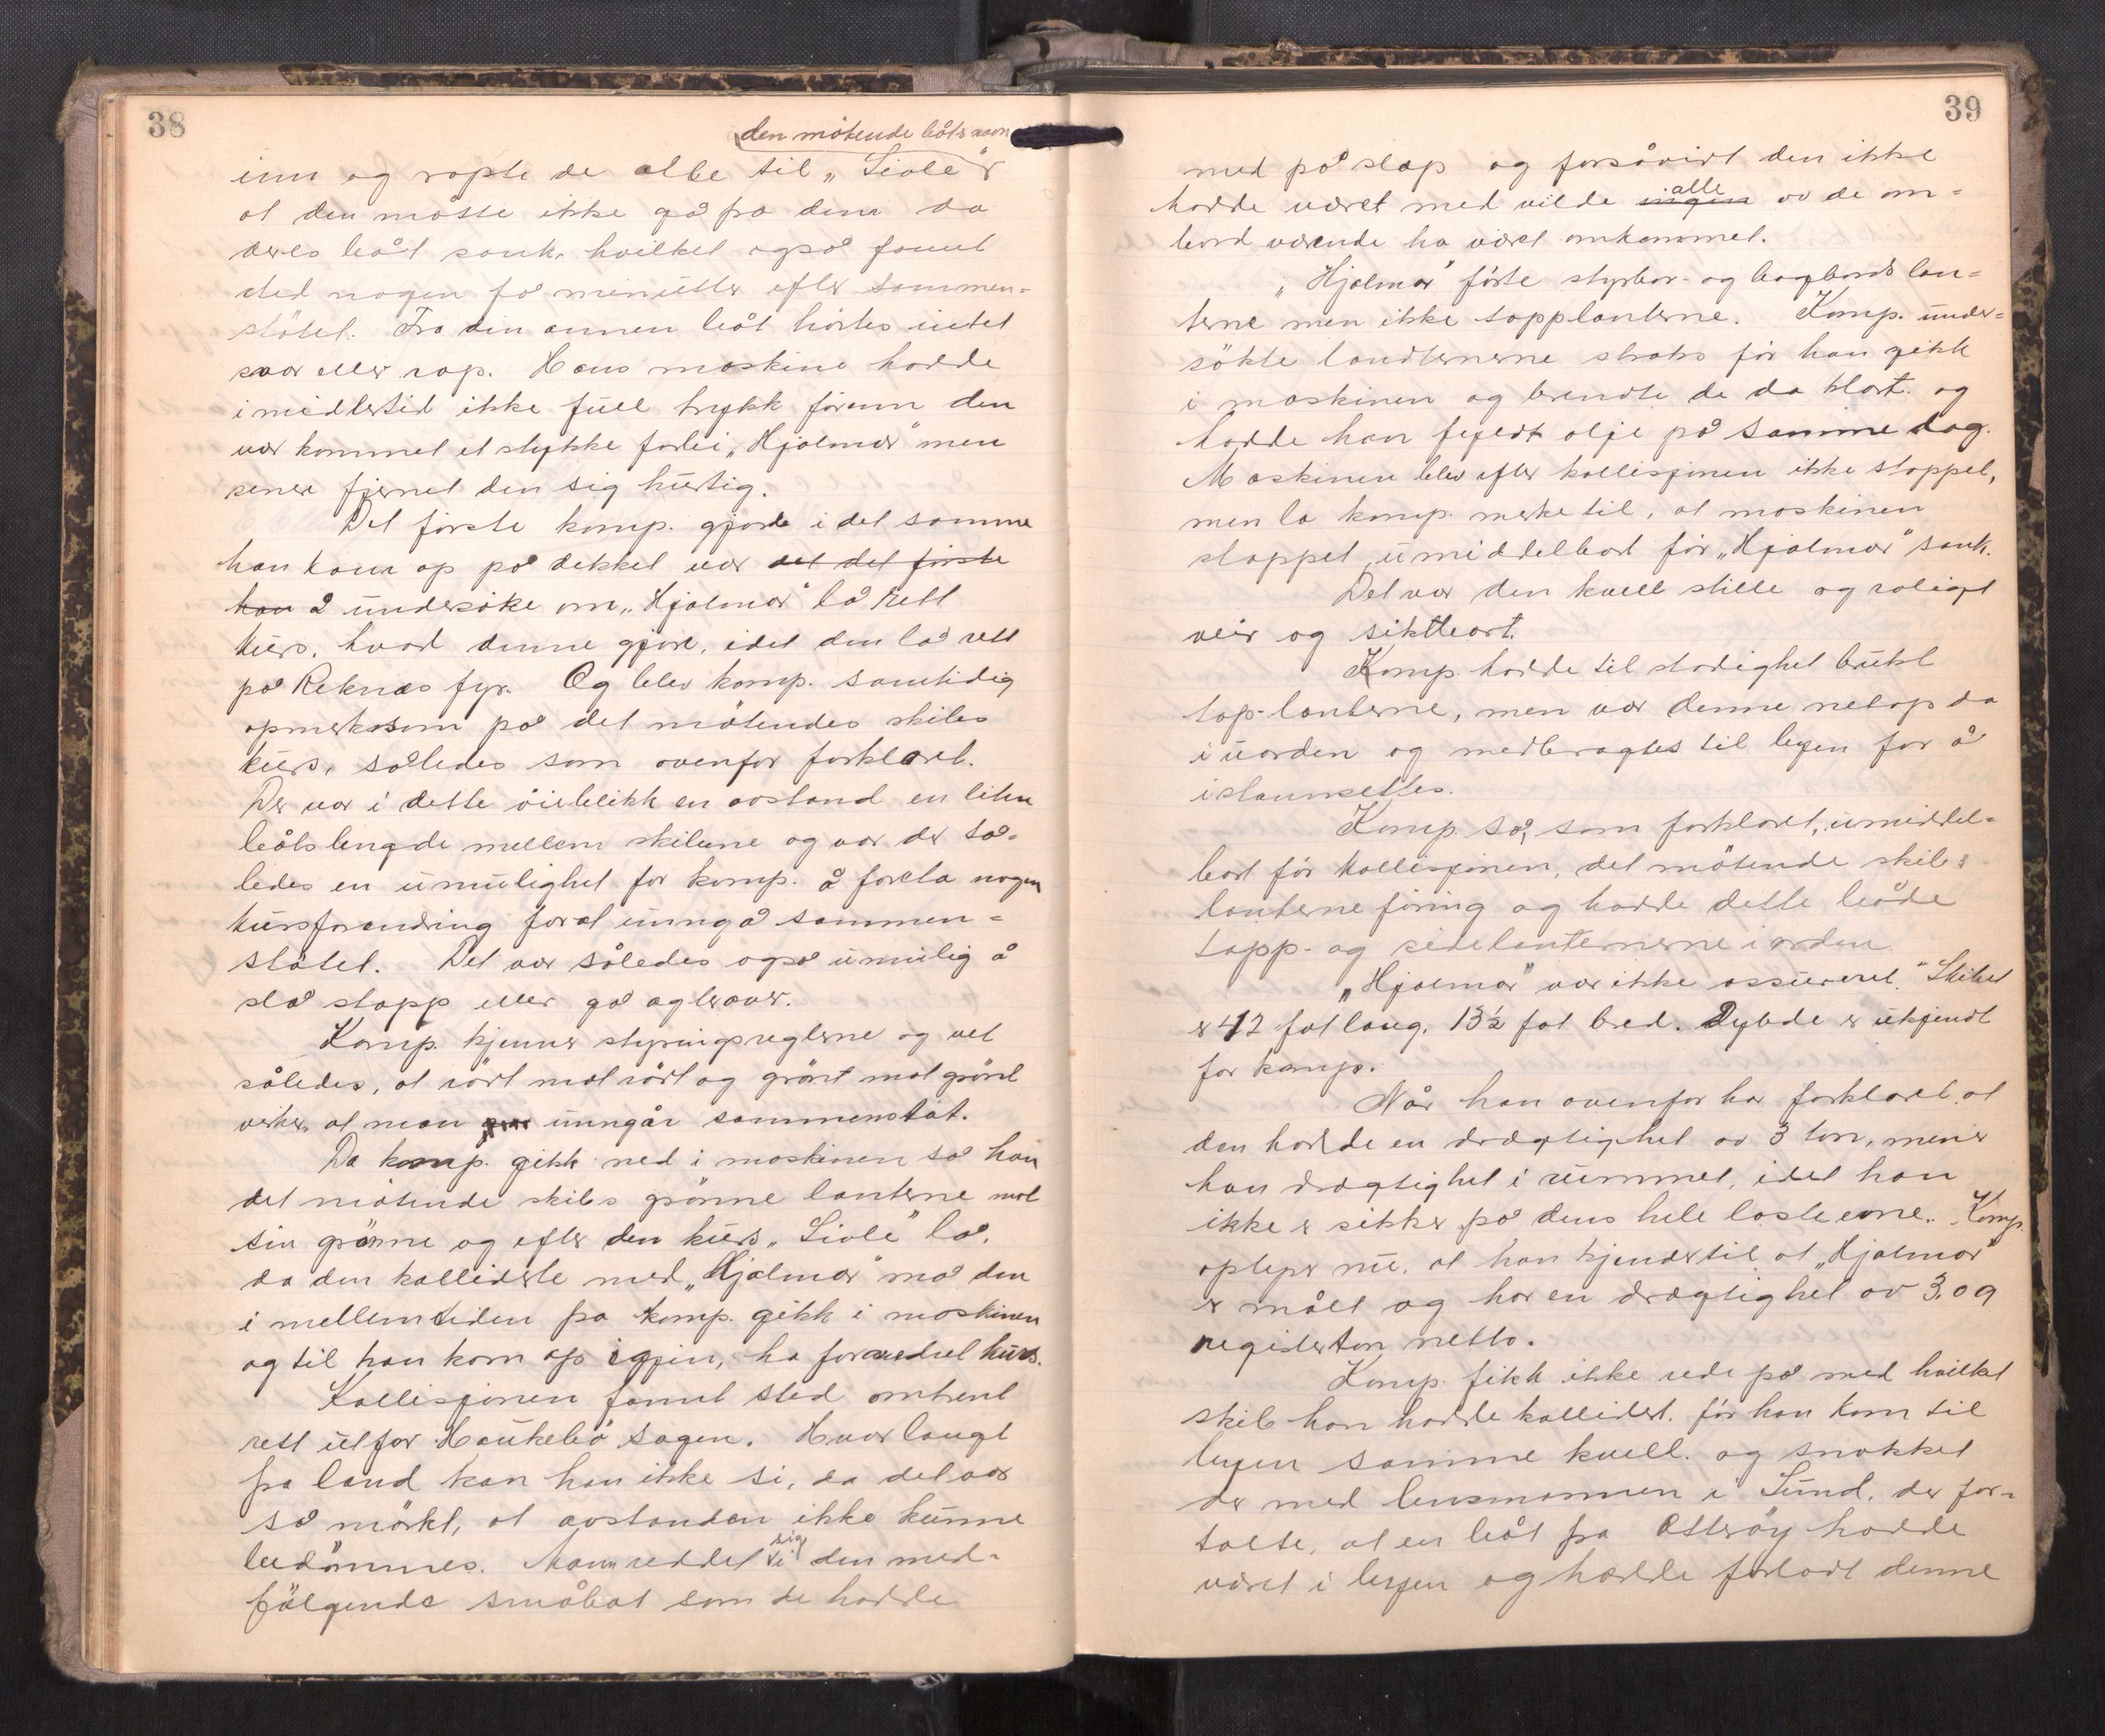 38
den mötende båts navn
inn og ropte de alle til "Liole"
at den måtte ikke gå fra dem da
deres båt sank, hvilket også fannt
sted nogen få minutter efter sammen-
stötet. Fra den annen båt hörtes intet
svar eller rop. Hans maskine hadde
imidlertid ikke full trykk förenn den
var kommet et stykke forbi "Hjalmar" men
senere fjernet den sig hurtig.
Det förste komp. gjorde i det samme
han kom op på dekket var det det förste
han å undersöke om "Hjalmar" lå rett
kurs, hvad denne gjore, idet den lå rett
på Reknes fyr. Og blev komp. samtidig
opmerksom på det mötendes skibs
kurs, således som ovenfor forklaret.
Der var i dette öieblikk en avstand en liten
båtslengde mellem skibene og var der så-
ledes en umulighet for komp. å foreta nogen
kursforandring for at unngå sammen-
stötet. Det var således også umulig å
slå stopp eller gå agterover.
Komp. kjenner styringsreglerne og vet
således, at rödt mot rödt og grönt mot grönt
virker, at man unngår sammenstöt.
Da komp. gikk ned i maskinen så han
det mötende skibs grönne lanterne mot
sin grönne og efter den kurs "Liole" lå,
da den kolliderte med "Hjalmar" må den
i mellemtiden fra komp. gikk i maskinen
og til han kom op igjen, ha forandret kurs.
Kollisjonen fannt sted omtrent
rett utfor Haukebö sagen. Hvor langt
fra land kan han ikke si, da det var
så mörkt, at avstanden ikke kunne
bedömmes. Mann reddet sig i den med-
fölgende småbåt som de hadde
39
med på slæp og forsåvidt den ikke
hadde været med vilde ingen alle av de om-
bord værende ha været omkommet.
"Hjalmar" förte styrbor- og bagbords lan-
terne men ikke topplanterne. Komp. under-
sökte landternerne straks för han gikk
i maskinen og brendte de da klart. og
hadde han fyldt olje på samme dag.
Maskinen blev efter kollisjonen ikke stoppet,
men la komp. merke til, at maskinen
stoppet umiddelbart för "Hjalmar" sank.
Det var den kvell stille og roligt
veir og siktbart.
Komp. hadde til stadighet brukt
top-lanterne, men var denne netop da
i uorden og medbragtes til byen for å
istannsettes.
Komp. så, som forklaret, umiddel-
bart för kollisjonen, det mötende skibs
lanterneföring og hadde dette både
topp- og sidelanternerne i orden
"Hjalmar" var ikke assureret. Skibet
er 42 fot lang, 13½ fot bred. Dybde er ukjendt
for komp.
Når han ovenfor har forklaret at
den hadde en drægtighet av 3 ton, mener
han drægtighet i rummet, idet han
ikke er sikker på dens hele lasteevne. Komp.
oplyser nu, at han kjender til at "Hjalmar"
er målt og har en drægtighet av 3.09
registerton netto.
Komp. fikk ikke rede på med hvilket
skib han hadde kollidert. för han kom til
byen samme kvell. og snakket
der med lensmannen i Sund. der for-
talte, at en båt fra Otteröy hadde
været i byen og hadde forlatt denne